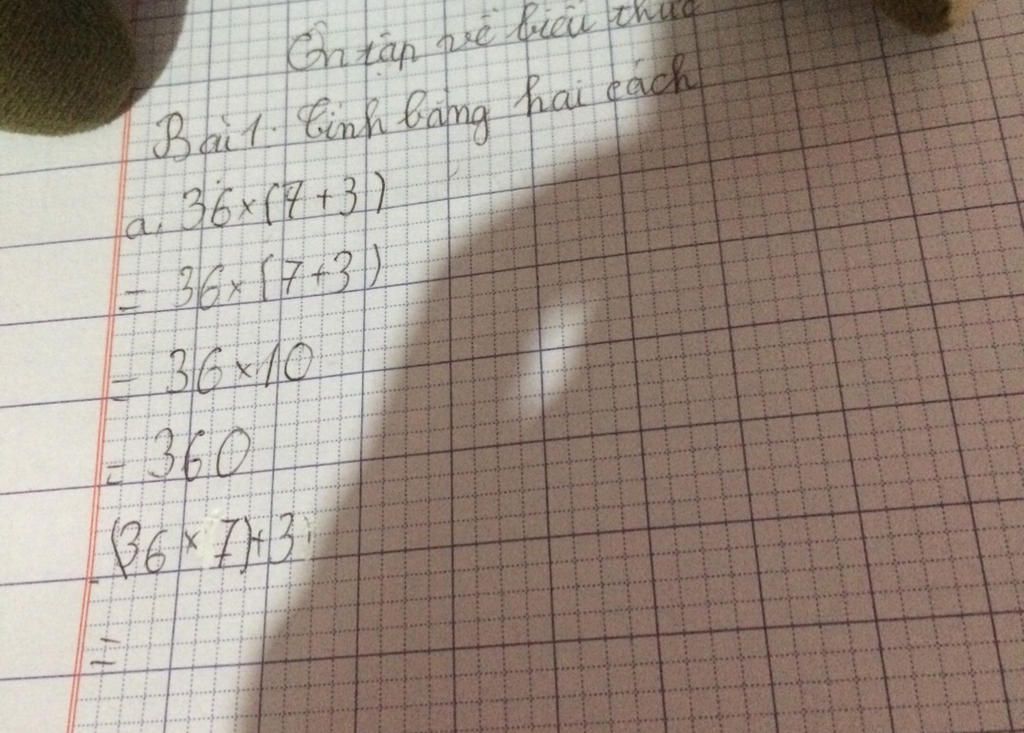 Ôn tập về biểu thức
Bài 1. Tính bằng hai cách
a, 36×(7+3)
= 36×(7+3)
= 36×10
= 360
(36×7)+3
=